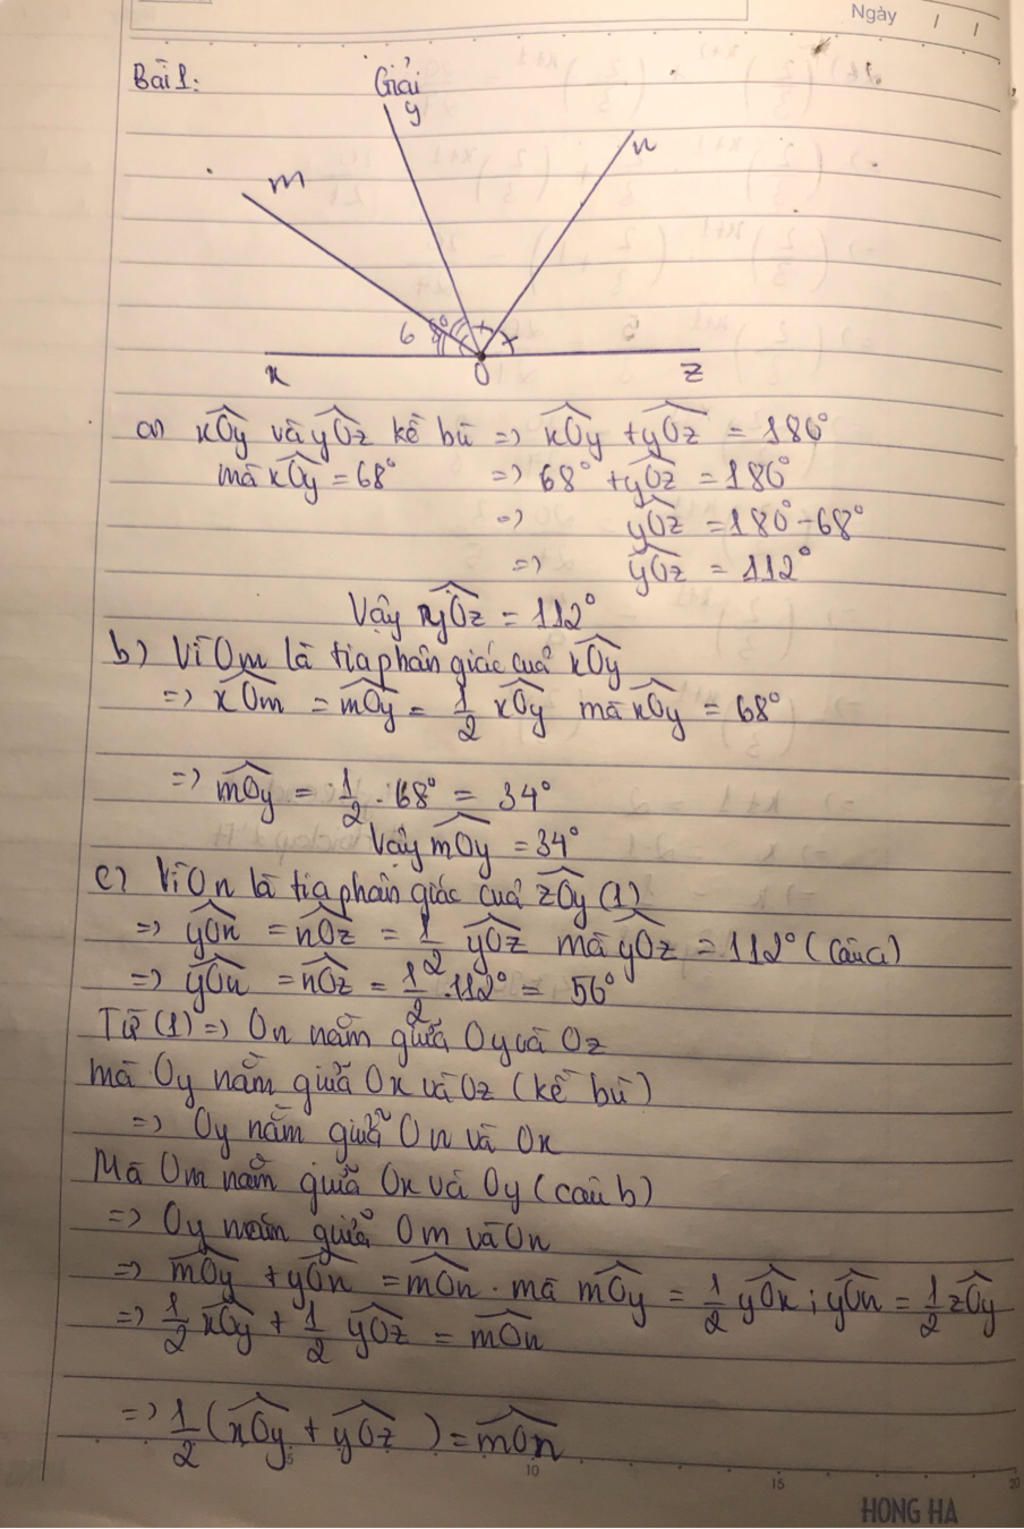 Ngày / /
Bài 1: Giải
y
n
m
68°
x O z
a) xOy và yOz kề bù => xOy + yOz = 180°
mà xOy = 68° => 68° + yOz = 180°
=> yOz = 180° - 68°
=> yOz = 112°
Vậy yOz = 112°
b) Vì Om là tia phân giác của xOy
=> xOm = mOy = 1/2 xOy mà xOy = 68°
=> mOy = 1/2 . 68° = 34°
Vậy mOy = 34°
c) Vì On là tia phân giác của zOy (1)
=> yOn = nOz = 1/2 yOz mà yOz = 112° (câu a)
=> yOn = nOz = 1/2 . 112° = 56°
Từ (1) => On nằm giữa Oy và Oz
mà Oy nằm giữa Ox và Oz (kề bù)
=> Oy nằm giữa On và Ox
Mà Om nằm giữa Ox và Oy (câu b)
=> Oy nằm giữa Om và On
=> mOy + yOn = mOn . mà mOy = 1/2 yOx ; yOn = 1/2 zOy
=> 1/2 xOy + 1/2 yOz = mOn
=> 1/2 (xOy + yOz) = mOn
5 10 15 20
HONG HA